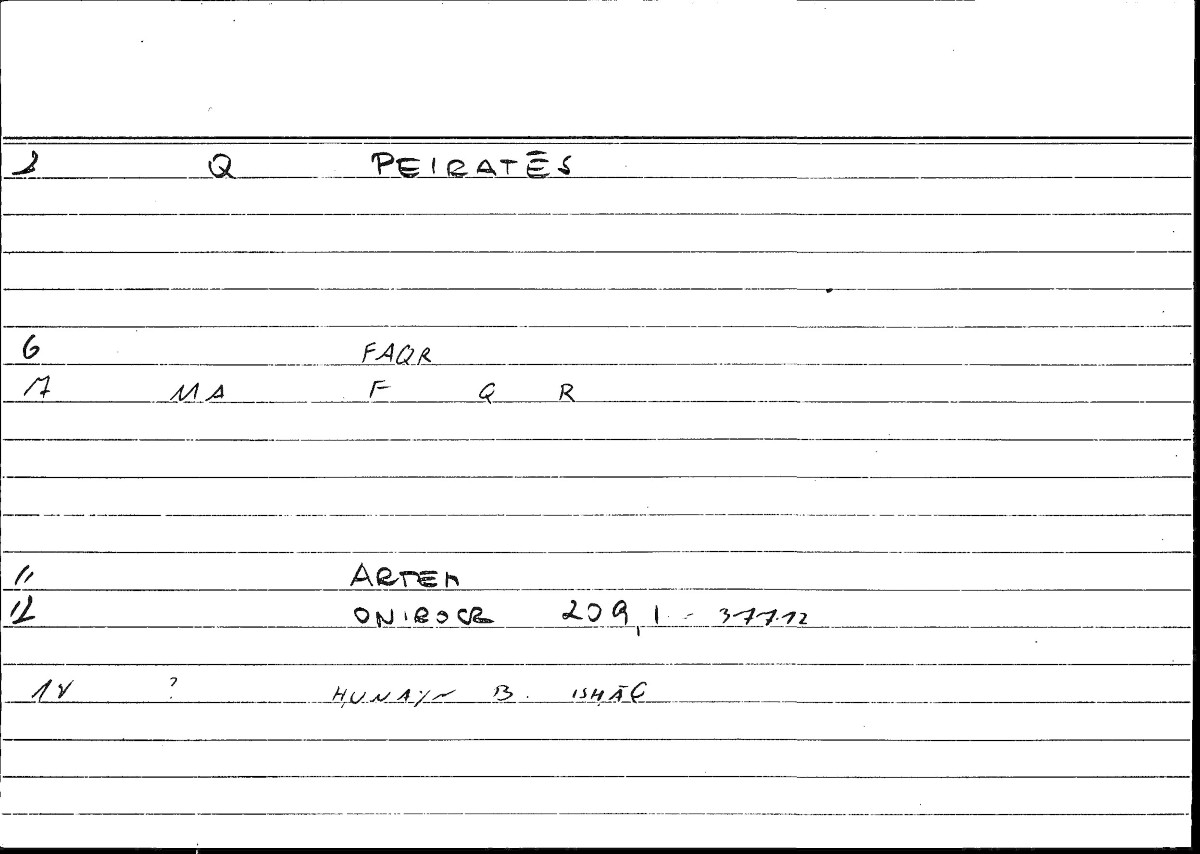 2 Q PEIRATĒS
6 FAQR
17 MA F Q R
11 ARTEM
12 ONIROCR 209,1 - 377.12
14 ? ḤUNAYN B. ISḤĀQ